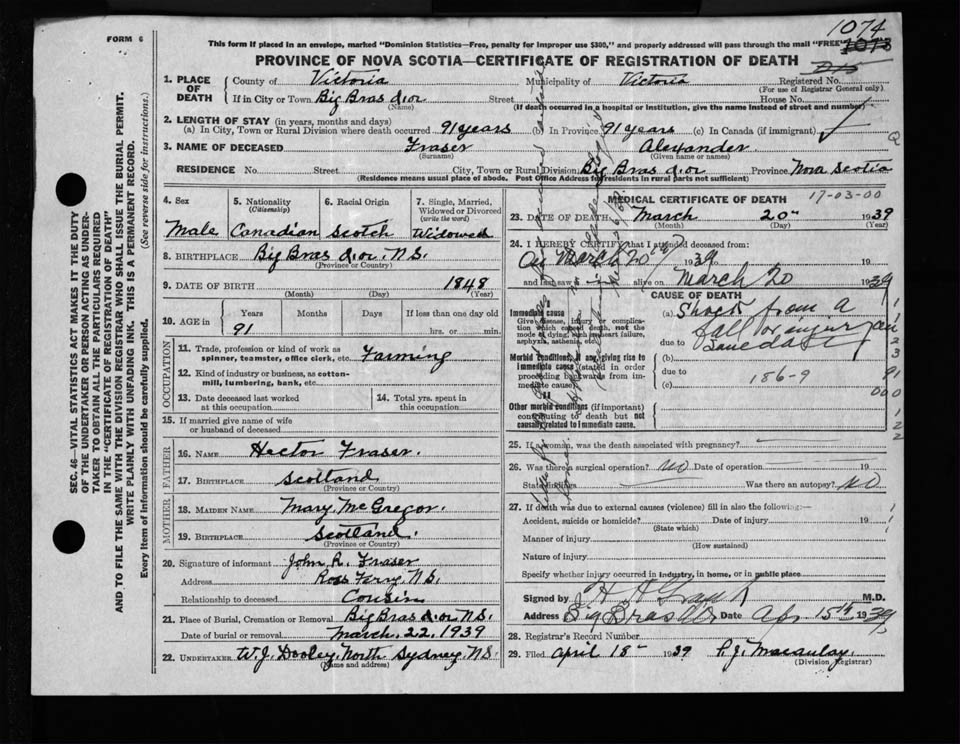 FORM 6
1074
1073
This form if placed in an envelope, marked "Dominion Statistics—Free, penalty for improper use $300," and properly addressed will pass through the mail "FREE"
PROVINCE OF NOVA SCOTIA—CERTIFICATE OF REGISTRATION OF DEATH
1. PLACE OF DEATH
County of Victoria Municipality of Victoria Registered No.
(For use of Registrar General only)
If in City or Town Big Bras d'or Street House No.
(Name) (If death occurred in a hospital or institution, give the name instead of street and number)
2. LENGTH OF STAY (in years, months and days)
(a) In City, Town or Rural Division where death occurred 91 years (b) In Province 91 years (c) In Canada (if immigrant)
3. NAME OF DECEASED Fraser Alexander
(Surname) (Given name or names)
RESIDENCE No. Street City, Town or Rural Division Big Bras d'or Province Nova Scotia
(Residence means usual place of abode. Post Office Address for residents in rural parts not sufficient)
4. Sex
Male
5. Nationality
(Citizenship)
Canadian
6. Racial Origin
Scotch
7. Single, Married, Widowed or Divorced
(write the word)
Widowed
8. BIRTHPLACE Big Bras d'or N.S.
(Province or Country)
9. DATE OF BIRTH 1848
(Month) (Day) (Year)
10. AGE in
Years Months Days If less than one day old
91 hrs. or min.
OCCUPATION
11. Trade, profession or kind of work as spinner, teamster, office clerk, etc. Farming
12. Kind of industry or business, as cotton-mill, lumbering, bank, etc.
13. Date deceased last worked at this occupation
14. Total yrs. spent in this occupation
15. If married give name of wife or husband of deceased
FATHER
16. NAME Hector Fraser.
17. BIRTHPLACE Scotland
(Province or Country)
MOTHER
18. MAIDEN NAME Mary McGregor.
19. BIRTHPLACE Scotland.
(Province or Country)
20. Signature of informant John R. Fraser
Address Ross Ferry N.S.
Relationship to deceased Cousin
21. Place of Burial, Cremation or Removal Big Bras d'or N.S.
Date of burial or removal March. 22. 1939
22. UNDERTAKER W.J. Dooley. North Sydney. N.S.
(Name and address)
MEDICAL CERTIFICATE OF DEATH 17-03-00
23. DATE OF DEATH March 20th 1939
(Month) (Day) (Year)
24. I HEREBY CERTIFY that I attended deceased from:
On March 20th 1939 19
and last saw alive on March 20 1939
CAUSE OF DEATH
Immediate cause
Give disease, injury or complication which caused death, not the mode of dying, such as heart failure, asphyxia, asthenia, etc.
(a) Shock from a
fall or injury
due to same day
Morbid conditions, if any, giving rise to immediate cause (stated in order proceeding backwards from immediate cause)
(b)
due to
(c) 186-9
Other morbid conditions (if important) contributing to death but not causally related to immediate cause.
25. If a woman, was the death associated with pregnancy?
26. Was there a surgical operation? no Date of operation 19
State findings Was there an autopsy? no
27. If death was due to external causes (violence) fill in also the following:—
Accident, suicide or homicide? Date of injury 19
(State which)
Manner of injury
(How sustained)
Nature of injury
Specify whether injury occurred in industry, in home, or in public place
Signed by H A Grant M.D.
Address Big Bras d'Or Date Apr 15th 1939
28. Registrar's Record Number
29. Filed April 18th 1939 P.J. Macaulay.
(Division Registrar)
SEC. 46—VITAL STATISTICS ACT MAKES IT THE DUTY
OF THE UNDERTAKER OR PERSON ACTING AS UNDER-
TAKER TO OBTAIN ALL THE PARTICULARS REQUIRED
IN THE "CERTIFICATE OF REGISTRATION OF DEATH"
AND TO FILE THE SAME WITH THE DIVISION REGISTRAR WHO SHALL ISSUE THE BURIAL PERMIT.
WRITE PLAINLY WITH UNFADING INK. THIS IS A PERMANENT RECORD.
Every item of information should be carefully supplied. (See reverse side for instructions.)